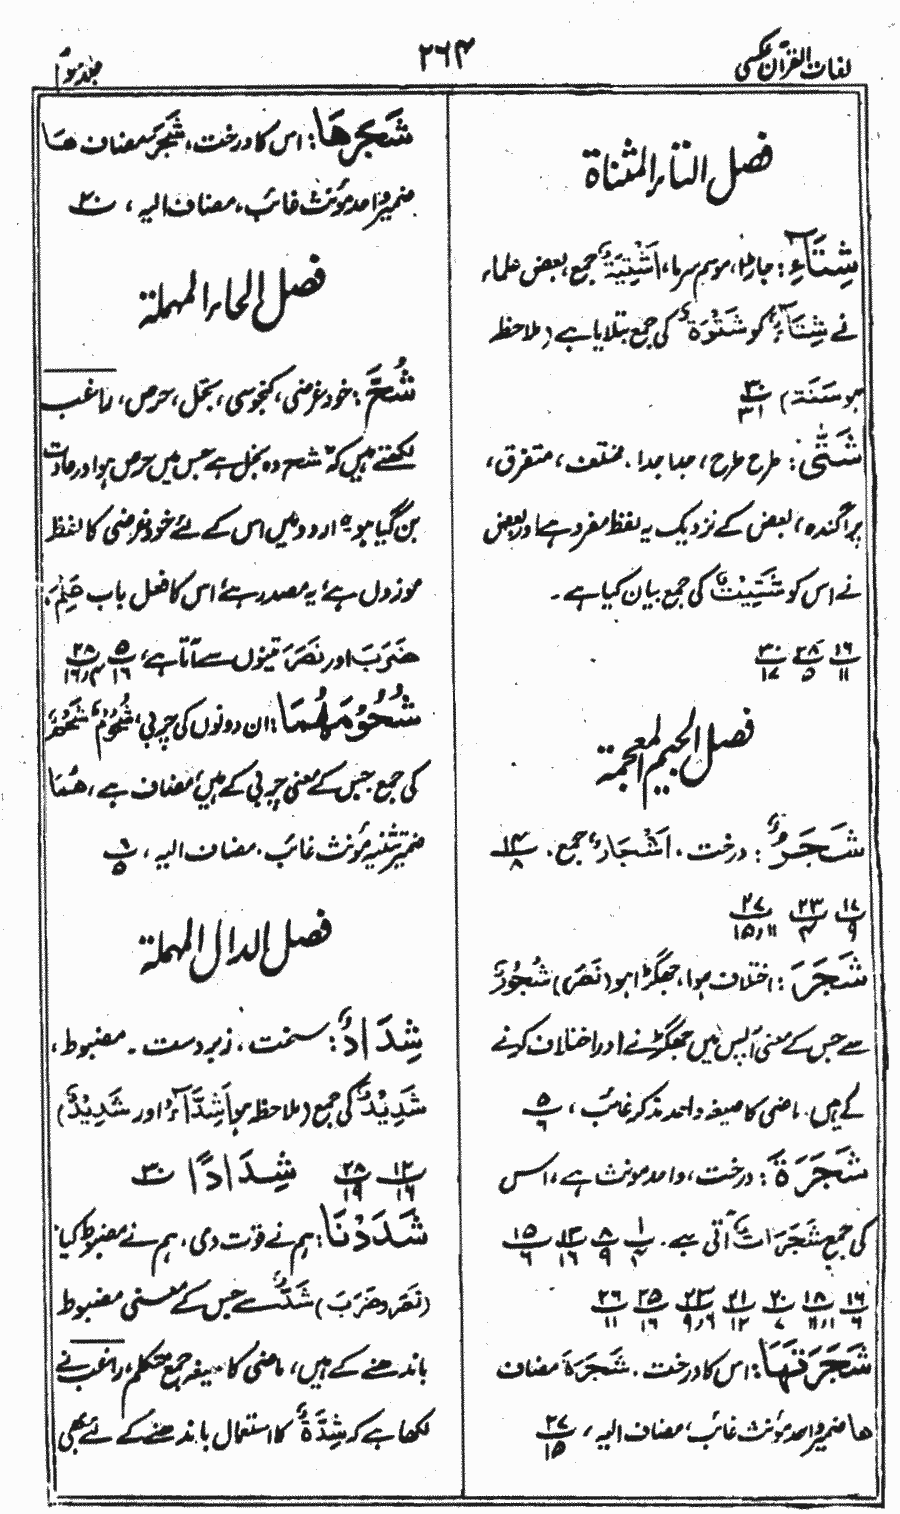 لغات القرآن عکسی
۲۶۴
جلد سوم
فصل التاء المثناة
شِتَآءِ: جاڑا، موسم سرما، اَشْتِيَةٌ جمع، بعض علماء
نے شِتَآءٌ کو شَتْوَةٌ کی جمع بتلایا ہے (ملاحظہ
ہو سَنَة) ۳۰/۳۱
شَتّٰى: طرح طرح، جدا جدا، مختلف، متفرق،
پراگندہ، بعض کے نزدیک یہ لفظ مفرد ہے اور بعض
نے اس کو شَتِيْتٌ کی جمع بیان کیا ہے۔
۱۶/۱۱ ۲۸/۵ ۳۰/۱۷
فصل الجيم المعجمة
شَجَرٌ: درخت، اَشْجَارٌ جمع، ۱۴/۸
۱۷/۹ ۲۳/۴ ۲۷/۱۵٫۱۱
شَجَرَ: اختلاف ہوا، جھگڑا ہو (نَصَرَ) شُجُوْرٌ
سے جس کے معنی آپس میں جھگڑنے اور اختلاف کرنے
کے ہیں۔ ماضی کا صیغہ واحد مذکر غائب، ۵/۶
شَجَرَةٌ: درخت، واحد مونث ہے، اس
کی جمع شَجَرَاتٌ آتی ہے۔ ۱/۴ ۸/۹ ۱۳/۱۶ ۱۵/۶
۱۶/۶ ۱۸/۲٫۱۱ ۲۰/۷ ۲۱/۱۲ ۲۳/۹٫۶ ۲۵/۱۶ ۲۶/۱۱
شَجَرَتَهَا: اس کا درخت، شَجَرَةَ مضاف
ها ضمیر واحد مؤنث غائب، مضاف الیہ، ۲۷/۱۵
شَجَرِهَا: اس کا درخت، شَجَرِ مضاف هَا
ضمیر واحد مؤنث غائب، مضاف الیہ، ۲۰
فصل الحاء المهملة
شُحَّ: خود غرضی، کنجوسی، بخل، حرص، راغب
لکھتے ہیں کہ شح وہ بخل ہے جس میں حرص ہو اور عادت
بن گیا ہو اردو میں اس کے لئے خود غرضی کا لفظ
موزوں ہے یہ مصدر ہے اس کا فعل باب عَلِمَ،
ضَرَبَ اور نَصَرَ تینوں سے آتا ہے، ۵/۱۶ ۲۸/۱۶٫۴
شُحُوْمَهُمَا: ان دونوں کی چربی، شُحُوْمٌ شَحْمٌ
کی جمع جس کے معنی چربی کے ہیں، مضاف ہے، هُمَا
ضمیر تثنیہ مؤنث غائب، مضاف الیہ، ۶/۵
فصل الدال المهملة
شِدَادٌ: سخت، زبردست، مضبوط،
شَدِيْدٌ کی جمع (ملاحظہ ہو اَشِدَّآءُ اور شَدِيْدٌ)
۱۲/۱۶ ۲۸/۱۹ شِدَادًا ۳۰
شَدَدْنَا: ہم نے قوت دی، ہم نے مضبوط کیا،
(نَصَرَ و ضَرَبَ) شَدٌّ سے جس کے معنی مضبوط
باندھنے کے ہیں، ماضی کا صیغہ جمع متکلم، راغب نے
لکھا ہے کہ شِدَّةٌ کا استعمال باندھنے کے لئے بھی